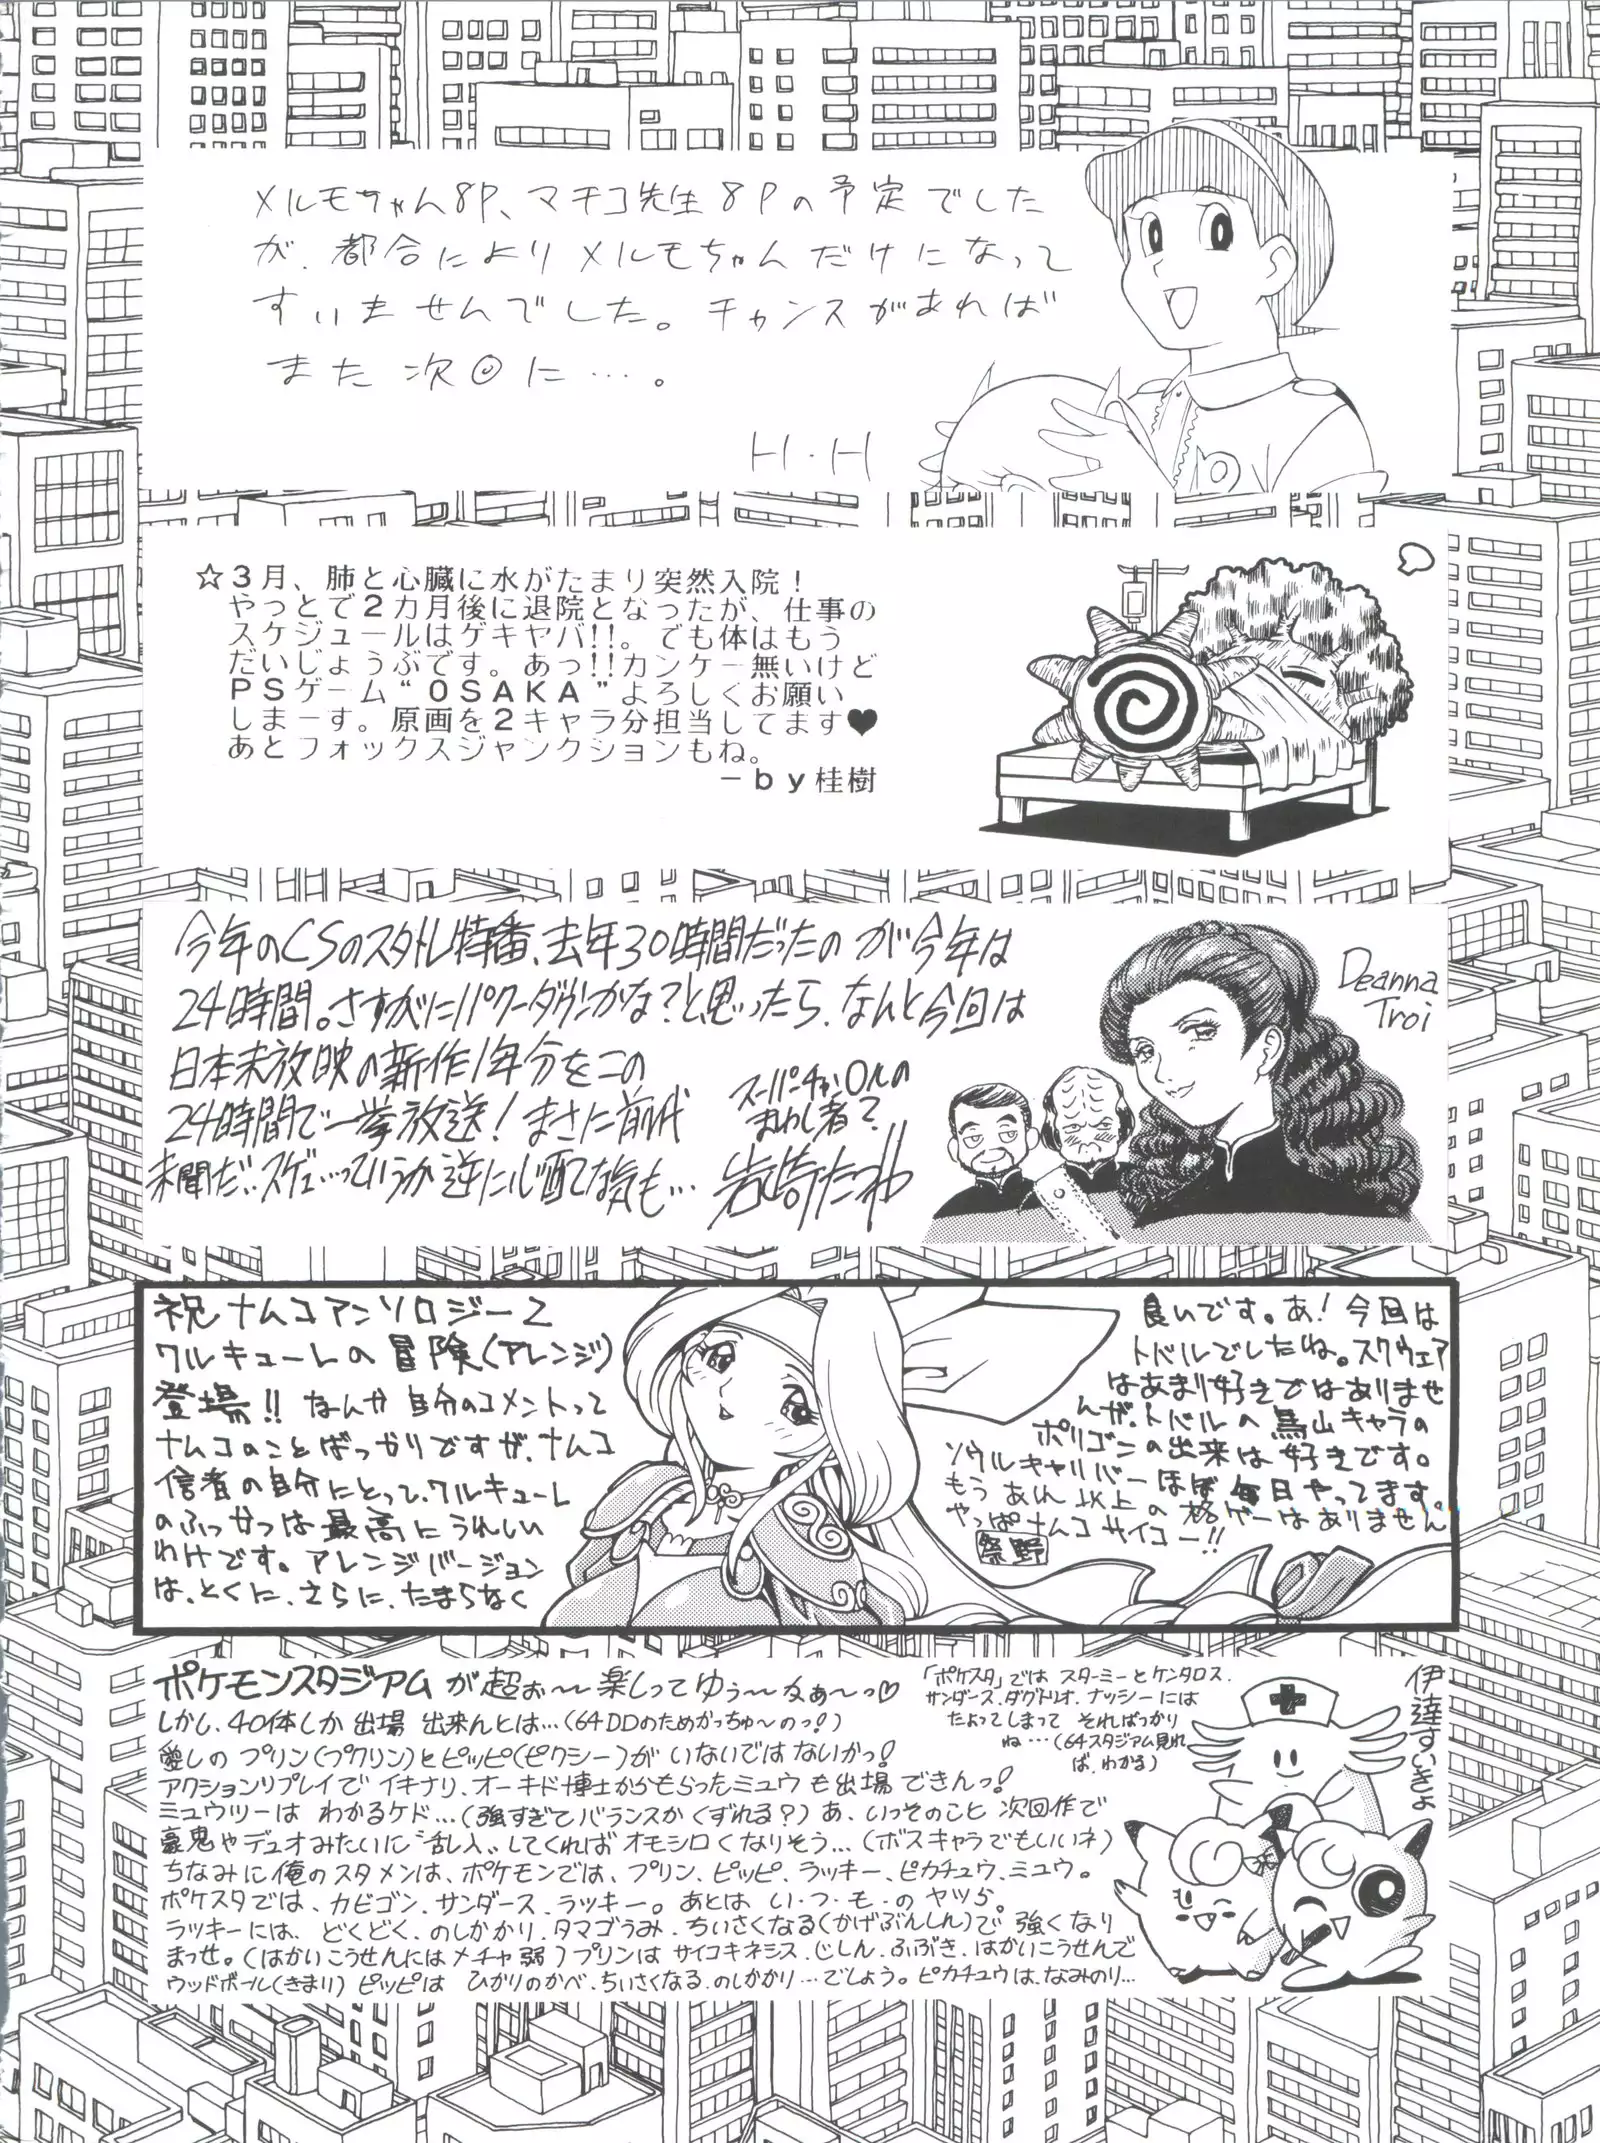 メルモちゃん8P、マチコ先生8Pの予定でした
が、都合によりメルモちゃんだけになって
すいませんでした。チャンスがあれば
また次回に…。
H・H
☆3月、肺と心臓に水がたまり突然入院！
やっとで2カ月後に退院となったが、仕事の
スケジュールはゲキヤバ!!。でも体はもう
だいじょうぶです。あっ!!カンケー無いけど
PSゲーム“OSAKA”よろしくお願い
しまーす。原画を2キャラ分担当してます♥
あとフォックスジャンクションもね。
－by桂樹
今年のCSのスタトレ特番、去年30時間だったのが今年は
24時間。さすがにパワーダウンかな？と思ったら、なんと今回は
日本未放映の新作1年分をこの
24時間で一挙放送！まさに前代
未聞だ‥スゲェ…っていうか逆に心配な気も…
スーパーチャンOルの
まわし者？
岩崎たつや
Deanna
Troi
祝ナムコアンソロジー2
ワルキューレの冒険(アレンジ)
登場!!なんか自分のコメントって
ナムコのことばっかりですが、ナムコ
信者の自分にとって、ワルキューレ
のふっかつは最高にうれしい
わけです。アレンジバージョン
は、とくに、さらに、たまらなく
良いです。あ！今回は
トバルでしたね。スクウェア
はあまり好きではありませ
んが、トバルの鳥山キャラの
ポリゴンの出来は好きです。
ソウルキャリバーほぼ毎日やってます。
もうあれ以上の格ゲーはありません
やっぱナムコサイコー!!
祭野
ポケモンスタジアムが超ぉ～楽しってゆぅ～なぁ～っ♡
しかし、40体しか出場出来んとは…(64DDのためがっちゅ～のっ!)
愛しのプリン(プクリン)とピッピ(ピクシー)がいないではないかっ!
アクションリプレイでイキナリ、オーキド博士からもらったミュウも出場できんっ!
ミュウツーはわかるケド…(強すぎてバランスがくずれる？)あ、いっそのこと次回作で
豪鬼やデュオみたいに“乱入”してくればオモシロくなりそう…(ボスキャラでもいいネ)
ちなみに俺のスタメンは、ポケモンでは、プリン、ピッピ、ラッキー、ピカチュウ、ミュウ。
ポケスタでは、カビゴン、サンダース、ラッキー。あとはい・つ・も・のヤツら。
ラッキーには、どくどく、のしかかり、タマゴうみ、ちいさくなる(かげぶんしん)で強くなり
まっせ。(はかいこうせんにはメチャ弱)プリンはサイコキネシス、じしん、ふぶき、はかいこうせんで
ウッドボール(きまり)ピッピはひかりのかべ、ちいさくなる、のしかかり…でしょう。ピカチュウは、なみのり…
「ポケスタ」ではスターミーとケンタロス、
サンダース、ダグトリオ、ナッシーには
たよってしまってそればっかり
ね…(64スタジアム見れ
ば、わかる)
伊達すいきょ